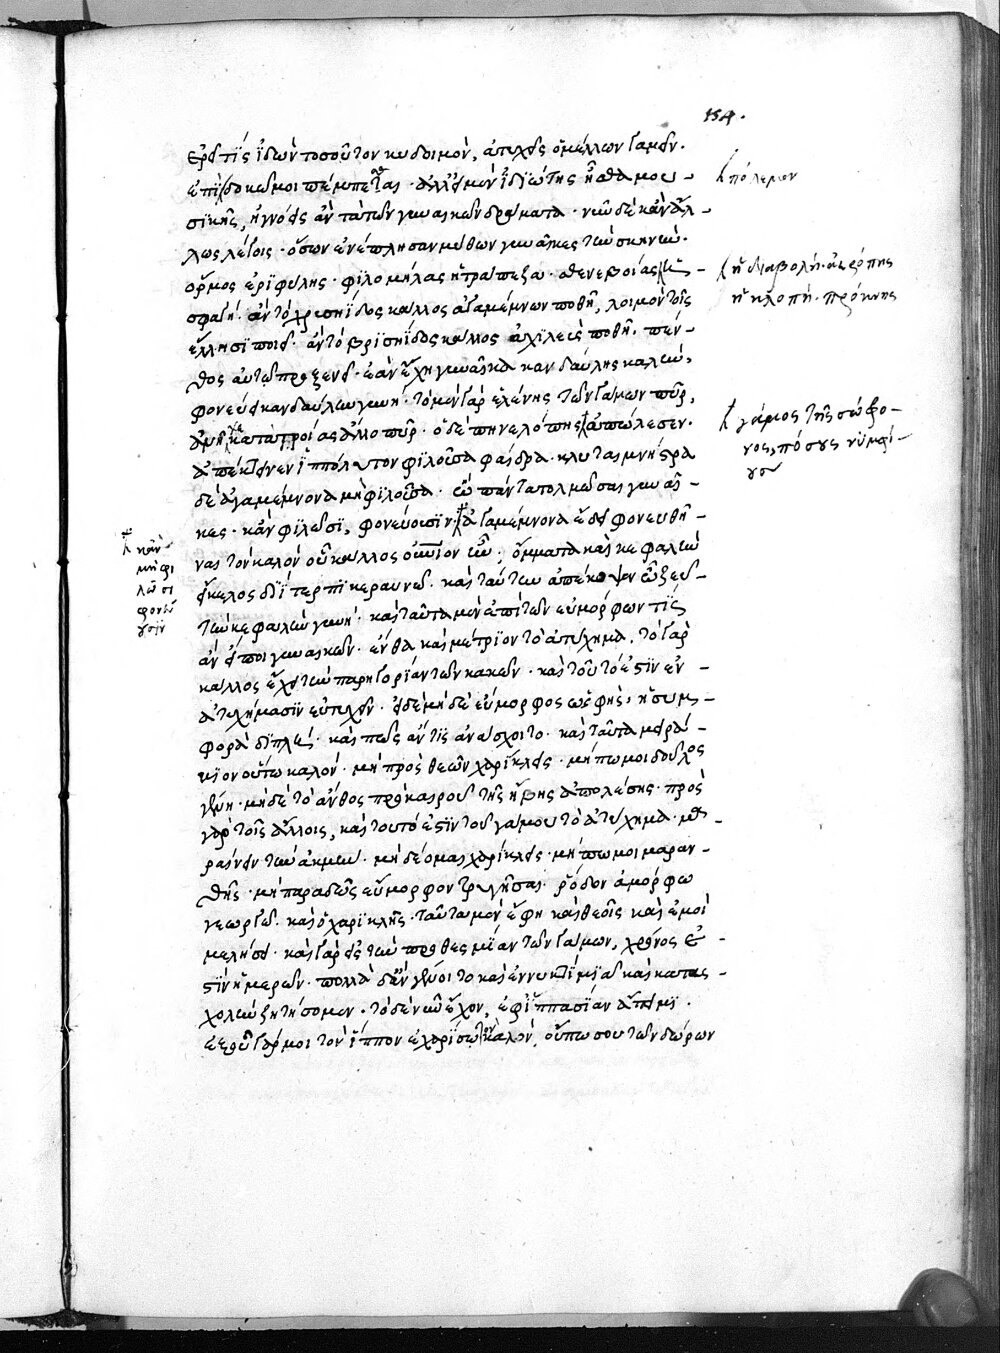 154.
ἐρεῖ τὶς ἰδὼν τοσοῦτον κυδοιμὸν, ἀτυχεῖς ὁ μέλλων γαμεῖν.
ἐπὶ δοκεῖ μοι πέμπεσθαι. ἀλλ' εἰ μὲν ἰδιώτης ἦσθα μου-
σικῆς, ἠγνόεις ἂν τὰ τῶν γυναικῶν δράματα. νῦν δὲ κἂν ἄλ-
λως λέγοις. ὅσων ἐνέπλησαν μύθων γυναῖκες τὴν σκηνήν.
ὅρμος ἐριφύλης. φιλομήλας ἡ τράπεζα. σθενεβοίας ἡ
σφαγή. ἂν τὸ χρυσηΐδος κάλλος ἀγαμέμνων ποθῆ, λοιμὸν τοῖς
ἕλλησι ποιεῖ. ἂν τὸ βρισηΐδος κάλλος ἀχιλεὺς ποθῆ. πέν-
θος αὐτῶ προξενεῖ. ἐὰν ἔχη γυναῖκα κανδαύλης καλὴν,
φονεύει κανδαύλην γυνή. τὸ μὲν γὰρ ἑλένης τῶν γάμων πῦρ,
ἀνῆψε κατὰ τροίας ἄλλο πῦρ. ὁ δὲ πηνελόπης ἀπώλεσεν.
ἀπέκτεινεν ἱππόλυτον φιλοῦσα φαίδρα. κλυταιμνήστρα
δὲ ἀγαμέμνονα μὴ φιλοῦσα. ὦ πάντα τολμῶσαι γυναῖ-
κες. κἂν φιλῶσι, φονεύουσιν ἀγαμέμνονα ἔδει φονευθῆ-
ναι τὸν καλὸν οὗ κάλλος οὐράνιον ἦν; ὄμματα καὶ κεφαλὴν
εἴκελος διῒ τερπικεραύνω. καὶ ταύτην ἀπέκοψεν ὦ ζεῦ-
τὴν κεφαλὴν γυνή. καὶ ταῦτα μὲν ἀπὶ τῶν εὐμόρφων τὶς
ἂν εἴποι γυναικῶν. ἔνθα καὶ μέτριον τὸ ἀτύχημα. τὸ γὰρ
κάλλος ἔχει τὴν παρηγορίαν τῶν κακῶν. καὶ τοῦτό ἐστιν ἐν
ἀτυχήμασιν εὐτυχεῖν. εἰ δὲ μὴ δὲ εὔμορφος ὡς φὴς, ἡ συμ-
φορὰ διπλῆ. καὶ πῶς ἄν τις ἀνάσχοιτο. καὶ ταῦτα μειρά-
κιον οὕτω καλὸν. μὴ πρὸς θεῶν χαρίκλεις. μή πω μοι δοῦλος
γένη. μὴ δὲ τὸ ἄνθος πρὸ καιροῦ τῆς ἥβης ἀπολέσης. πρὸς
γὰρ τοῖς ἄλλοις, καὶ τοῦτό ἐστιν τοῦ γάμου τὸ ἀτύχημα.
ραίνειν τὴν ἀκμὴν. μὴ δέομαι χαρίκλεις. μή πω μοι μαραν-
θῆς. μὴ παραδῶς εὔμορφον τρυγῆσαι ῥόδον ἀμόρφω
γεωργῶ. καὶ ὁ χαρικλῆς. ταῦτα μὲν ἔφη καὶ θεοῖς καὶ ἐμοὶ
μελήσει. καὶ γὰρ εἰς τὴν προθεσμίαν τῶν γάμων, χρόνος ἐ-
στὶν ἡμερῶν. πολλὰ δ' ἂν γένοιτο καὶ ἐν νυκτὶ μιᾶ καὶ κατὰ
σχολὴν ζητήσομεν. τὸ δὲ νῦν ἔχον, ἐφ' ἱππασίαν ἄπειμι.
ἐξ οὗ γάρ μοι τὸν ἵππον ἐχαρίσω τὸν καλὸν, οὔπω σου τῶν δώρων
πόλεμον
ἡ διαβολή. ἀερόπης
ἡ κλοπή. πρόκνης
γάμος τῆς σώφρο-
νος, πόσους νυμφί-
ους
κἂν
μὴ φι
λῶσι
φονεύ
ουσιν